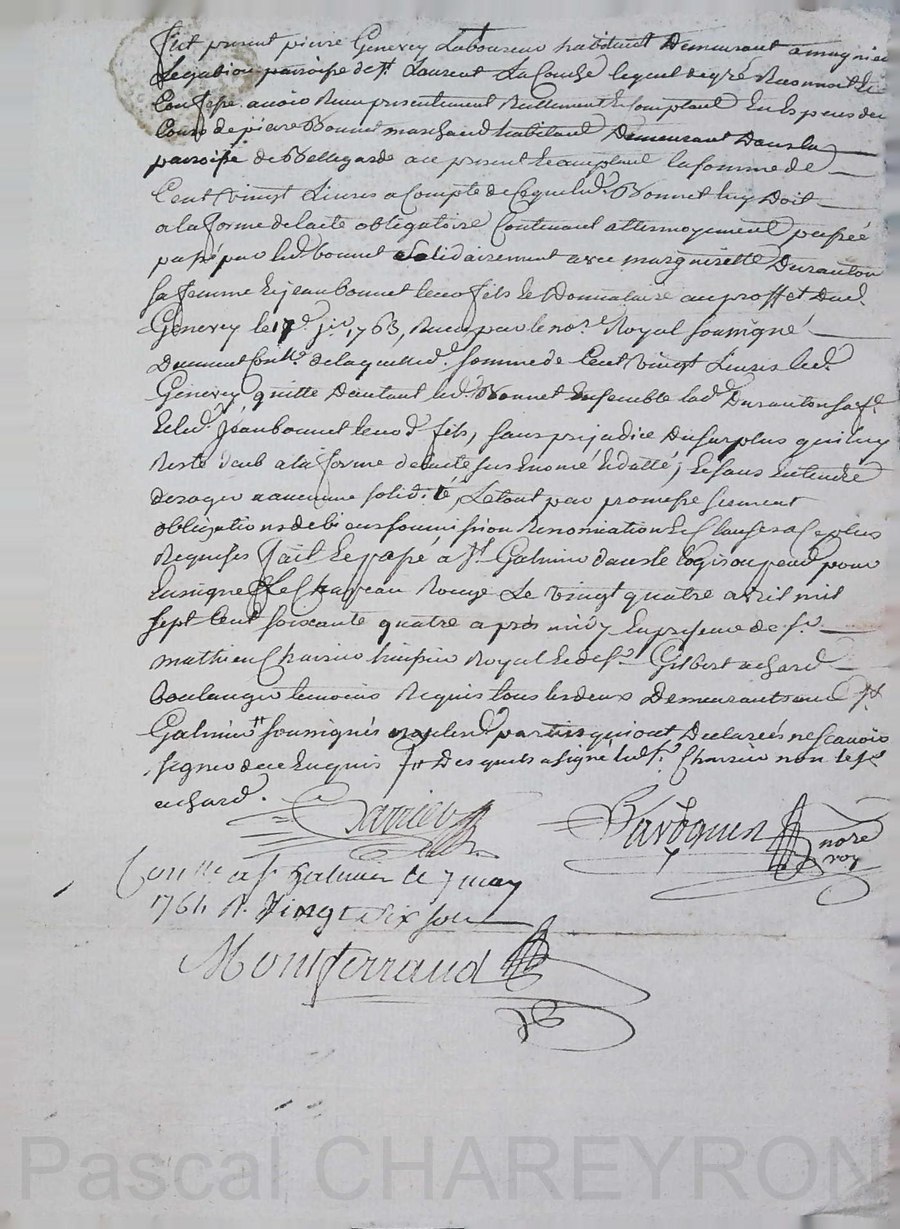 fut present pierre Genevey Laboureur habitant Demeurant a magnieu
Legation parroisse de st. Laurent La Conche lequel de gré Reconnoit et
Confesse avoir Reçu presentement Reellement et Comptant En Especes du
Cours de pierre Bonnet marchand habitant Demeurant Dans la
paroisse de Bellegarde a ce present acceptant la somme de
Cent vingt Livres a Compte de Ce que led. Bonnet luy Doit
a la forme de lacte obligatoire Contenant attermoyement passée
passé par led bonnet solidairement avec margueritte Duranton
sa femme et jean bonnet leur fils et Donnataire au proffet dud.
Genevey le 17e. 1763, Reçu par le nore. Royal soussigné
Duement Conllé. de laquelle d. somme de Cent vingt Livres led.
Genevey quitte Dautant led. Bonnet Ensemble lad. Duranton sa fe.
et led. Jean bonnet leur d. fils, sans prejudice Du surplus qui luy
Reste dub a la forme de lacte sus Enomé et datté; et sans Entendre
deroger a aucune solidité, Le tout par promesse serment
obligations de biens soumission Renonciation et Clauses a ce plus
Requises fait et passé à st. Galmier dans le logis ou pend pour
Enseigne Le Chapeau Rouge Le vingt quatre avril mil
sept Cent soixante quatre apres midy En presence de sr.
mathieu huissier Royal et de sr. Gilbert achard
boulanger temoins Requis tous les deux Demeurants aud st.
Galmier soussignés non lesd. parties qui ont Declarées ne scavoir
signer de ce Enquis Desquels a signé led. sr. non led sr.
achard.
nore
roy
Conllé a st Galmier le 7 may
1764 R. Vingt six sous
Montferraud
Pascal CHAREYRON